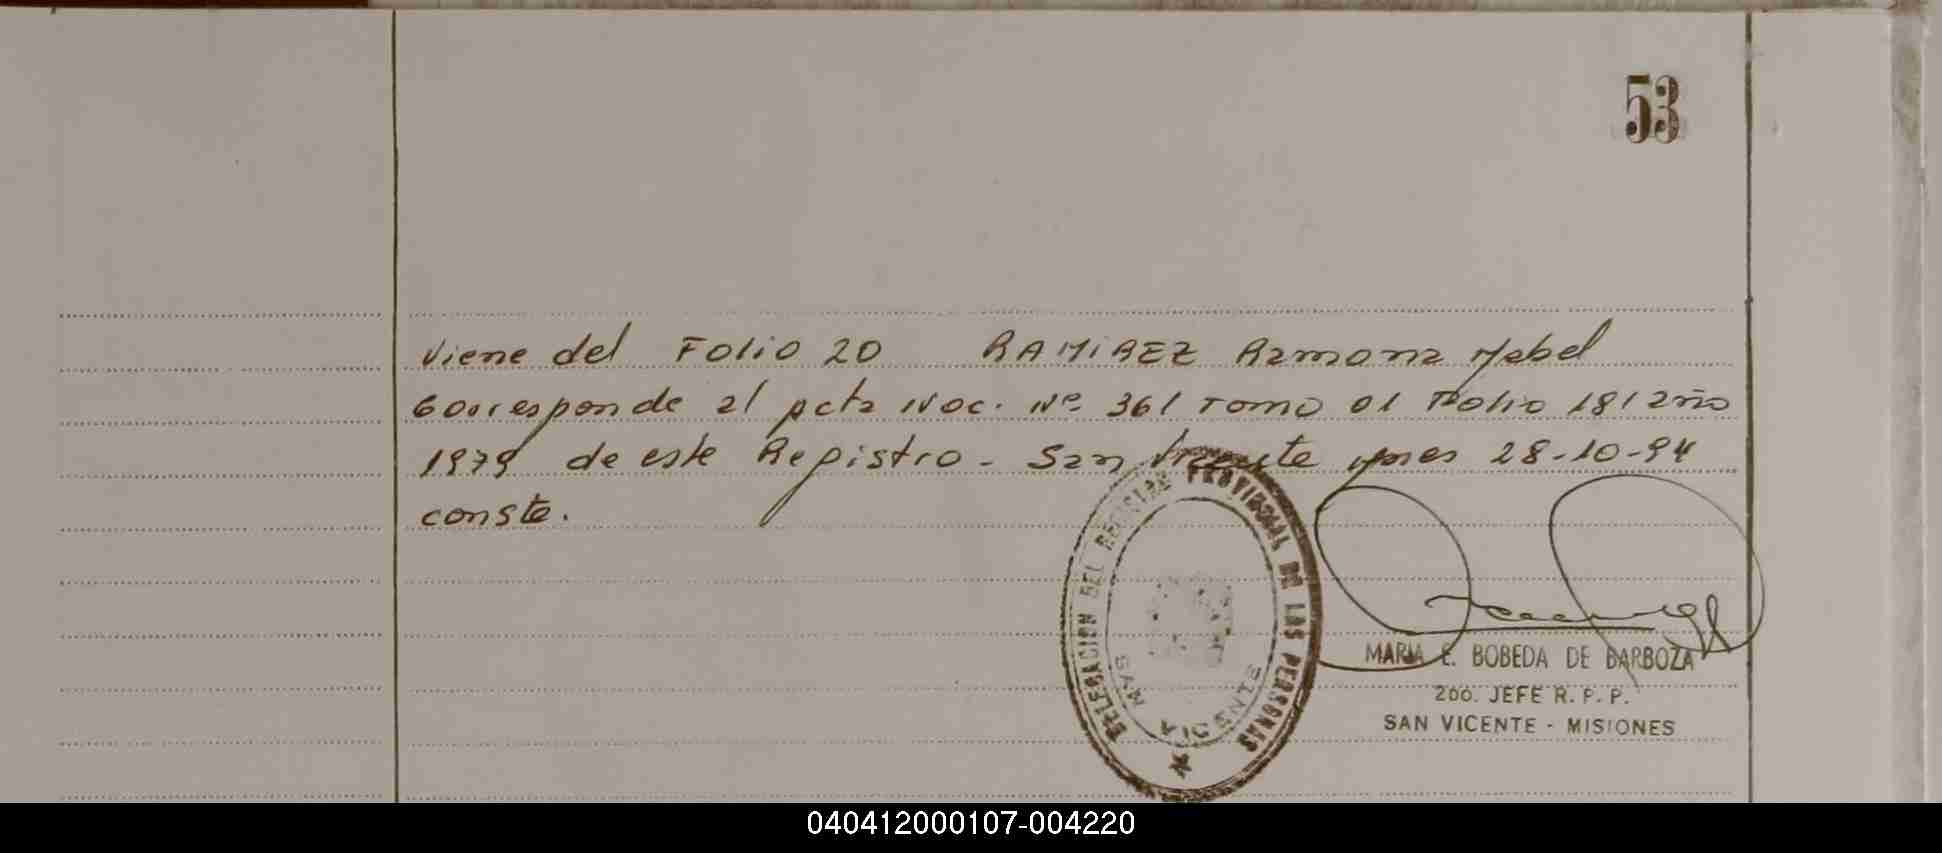 53
Viene del Folio 20 RAMIREZ Ramona Mabel
Corresponde al acta Nac. Nº 361 Tomo 01 Folio 181 año
1979 de este Registro - San Vicente Mnes 28-10-94
conste.
DELEGACION DEL REGISTRO PROVINCIAL DE LAS PERSONAS
SAN VICENTE
MARIA E. BOBEDA DE BARBOZA
2do. JEFE R. P. P.
SAN VICENTE - MISIONES
040412000107-004220